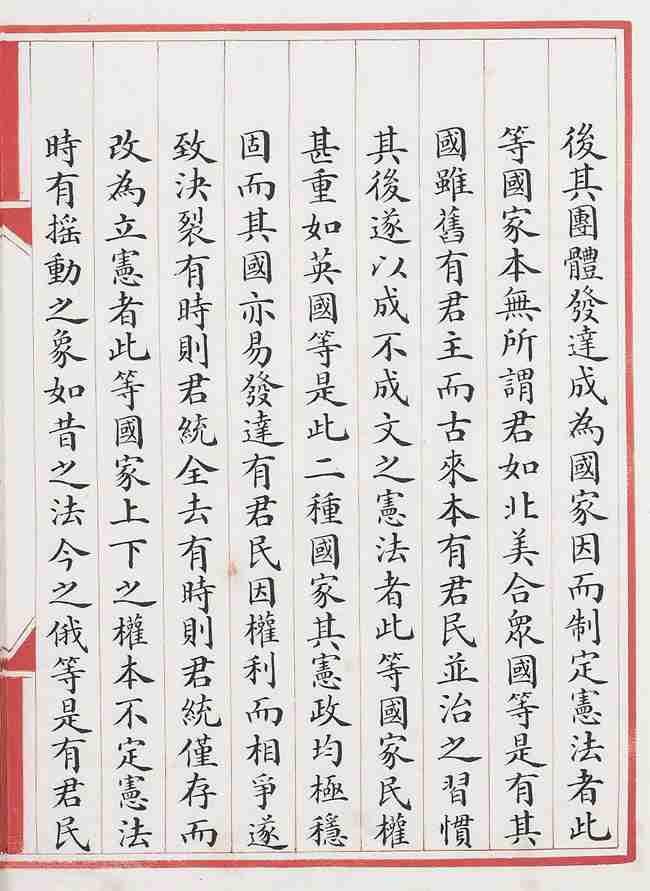 後其團體發達成為國家因而制定憲法者此
等國家本無所謂君如北美合眾國等是有其
國雖舊有君主而古來本有君民並治之習慣
其後遂以成不成文之憲法者此等國家民權
甚重如英國等是此二種國家其憲政均極穩
固而其國亦易發達有君民因權利而相爭遂
致決裂有時則君統全去有時則君統僅存而
改為立憲者此等國家上下之權本不定憲法
時有搖動之象如昔之法今之俄等是有君民